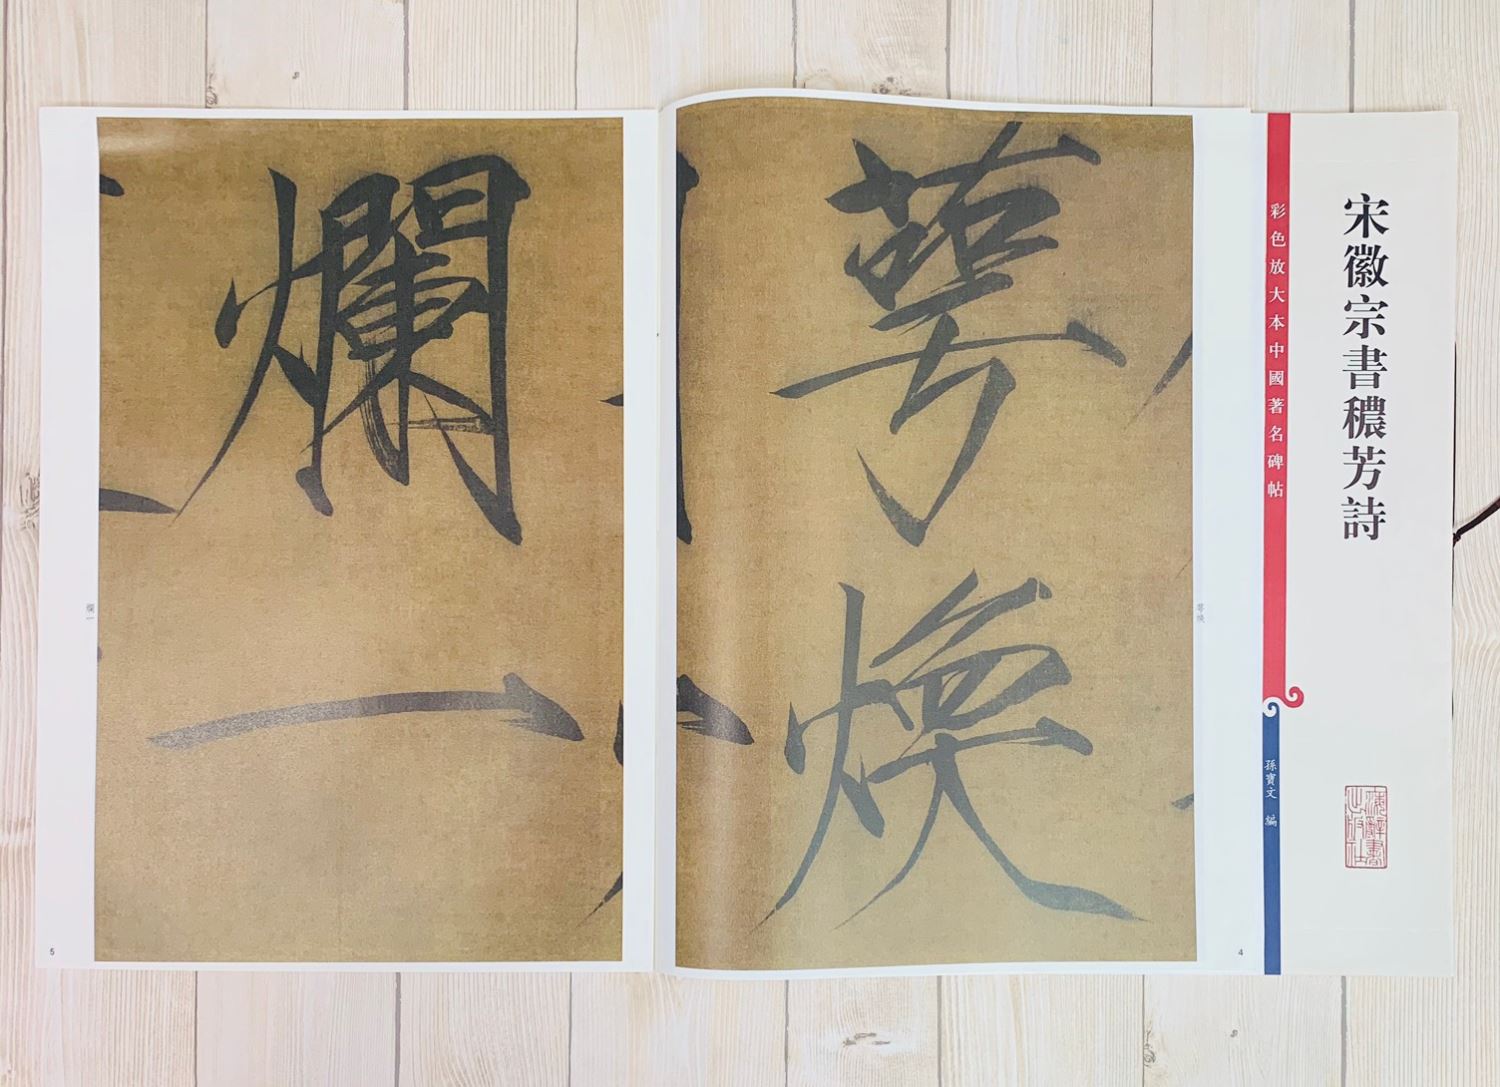 宋徽宗書穠芳詩
彩色放大本中國著名碑帖
孫寶文 編
上海辭書出版社
萼煥
萼煥
4
爛一
爛一
5